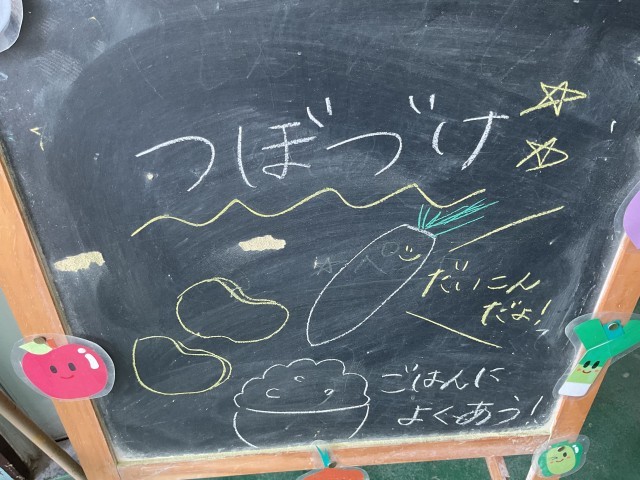 つぼづけ
だいこん
だよ!
ごはんに
よくあう!